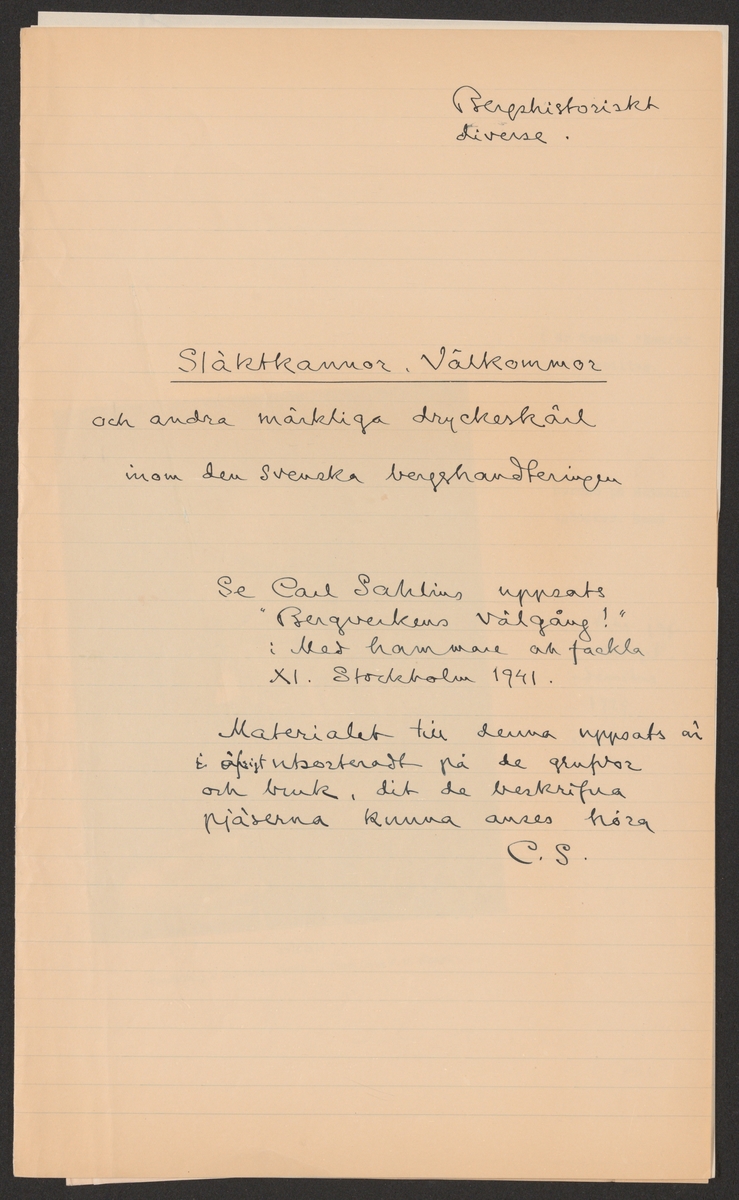 Bergshistoriskt
diverse.
Släktkannor, Välkommor
och andra märkliga dryckeskärl
inom den svenska bergshandteringen
Se Carl Sahlins uppsats
"Bergverkens välgång!"
i Med hammare och fackla
XI. Stockholm 1941.
Materialet till denna uppsats är
i utsorteradt på de grufvor
och bruk, dit de beskrifna
pjäserna kunna anses höra
C. S.